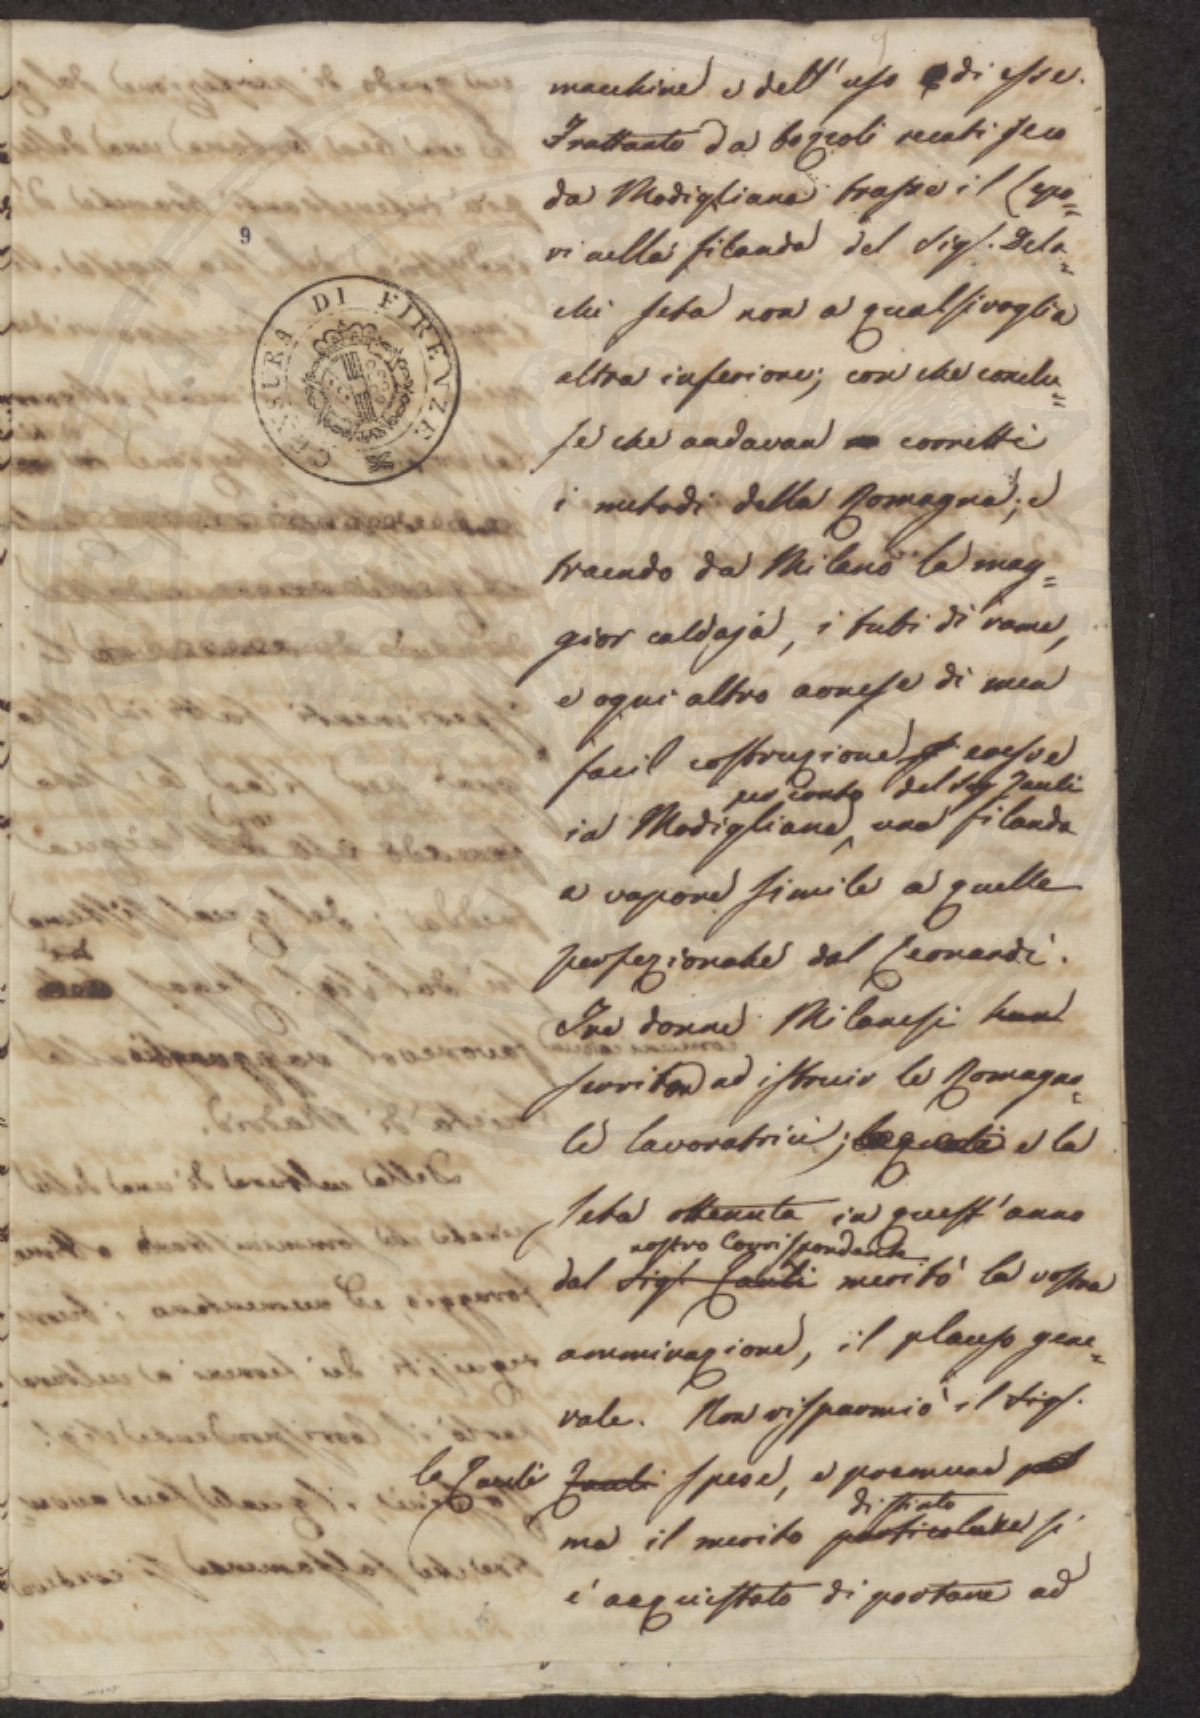 9
CENSURA DI FIRENZE
macchine e dell' uso di esse.
Frattanto da bozzoli recati seco
da Modigliana trasse il Lepo=
ri nella filanda del Sig.r Dela=
chi seta non a qualsivoglia
altra inferiore; con che conclu=
se che andavan corretti
i metodi della Romagna; e
traendo da Milano la mag=
gior caldaja, i tubi di rame,
e ogni altro arnese di men
facil costruzione eresse
per conto del Sig Zauli
in Modigliana, una filanda
a vapore simile a quelle
perfezionate dal Leonardi.
Tre donne Milanesi han
servito ad istruir le Romagno=
le lavoratrici; le quali e la
seta ottenuta in quest' anno
nostro Corrispondente
dal Sig.r Zauli meritò la vostra
ammirazione, il plauso gene=
rale. Non risparmiò il Sig.r
le Zauli Zauli spese, e premure
distinto
ma il merito particolare si
è acquistato di portare ad